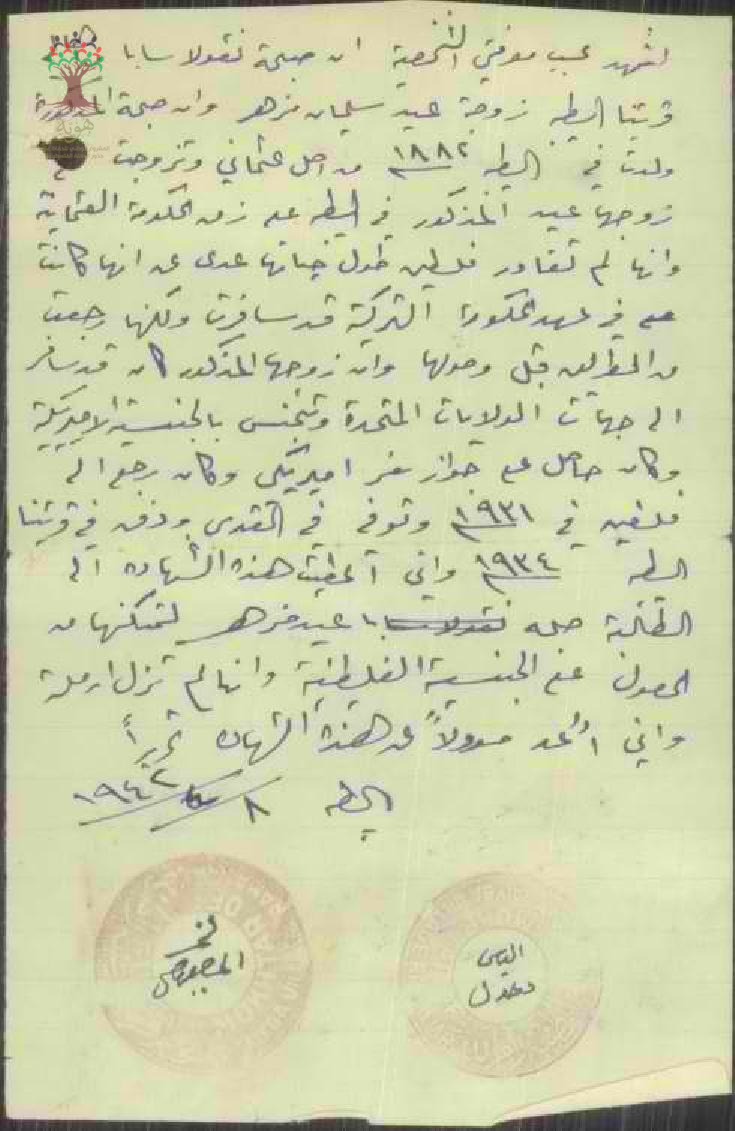 اشهد بحسب معرفتي الشخصية ان صبحة نقولا سابا
قريتنا الرطبه زوجة عيد سليمان مزهر وان صبحة المذكورة
ولدت في ١٨٨٢ من اصل عثماني وتزوجت
زوجها عيد المذكور في زمن الحكومة العثمانية
وانها لم تغادر فلسطين طول حياتها عدى عن انها كانت
في عهد الحكومة التركية قد سافرت ولكنها رجعت
من قبل وصولها وان زوجها المذكور كان قد سافر
الى جهات الولايات المتحدة وتجنس بالجنسية الاميريكية
وكان حاصل على جواز سفر اميريكي وكان رجع الى
فلسطين في ١٩٣١ وتوفى في القدس ودفن في قريتنا
١٩٣٤ واني اعطيت هذه الشهادة الى
الطالبة عيد مزهر لتمكنها من
الحصول على الجنسية الفلسطنية وانها لم تزل ارملة
واني اعد مسؤولاً عن هذه الشهاده تحريراً
٨ ١٩٤٢
الياس